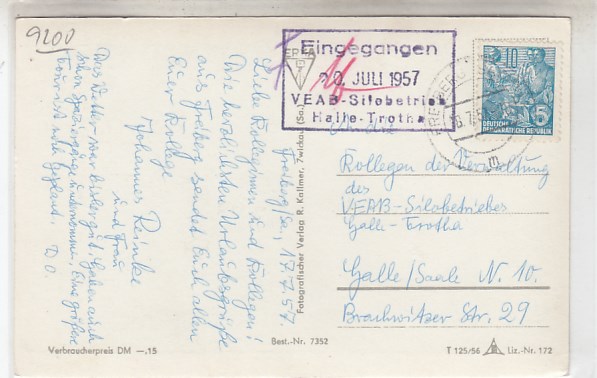 9200
Freiberg/Sa., 17.7.57
Liebe Kolleginnen und Kollegen!
Die herzlichsten Urlaubsgrüße
aus Freiberg sendet Euch allen
Euer Kollege
Johannes Reinke
und Frau
Das Wetter war bisher gut. Haben auch
schon Spaziergänge unternommen. Eine größere
Tour ist noch geplant. D. O.
Verbraucherpreis DM –,15
Best.-Nr. 7352
Fotografischer Verlag R. Kallmer, Zwickau (Sa.)
Eingegangen
20. JULI 1957
VEAB-Silobetrieb
Halle-Trotha
FREIBERG
DEUTSCHE
DEMOKRATISCHE REPUBLIK
5
An die
Kollegen der Verwaltung
des
VEAB-Silobetriebes
Halle-Trotha
Halle/Saale N. 10.
Brachwitzer Str. 29
T 125/56
Liz.-Nr. 172